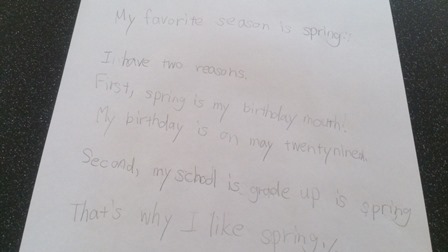 My favorite season is spring.
I have two reasons.
First, spring is my birthday mouth.
My birthday is on may twentynined.
Second, my school is grade up is spring
That's why I like spring!